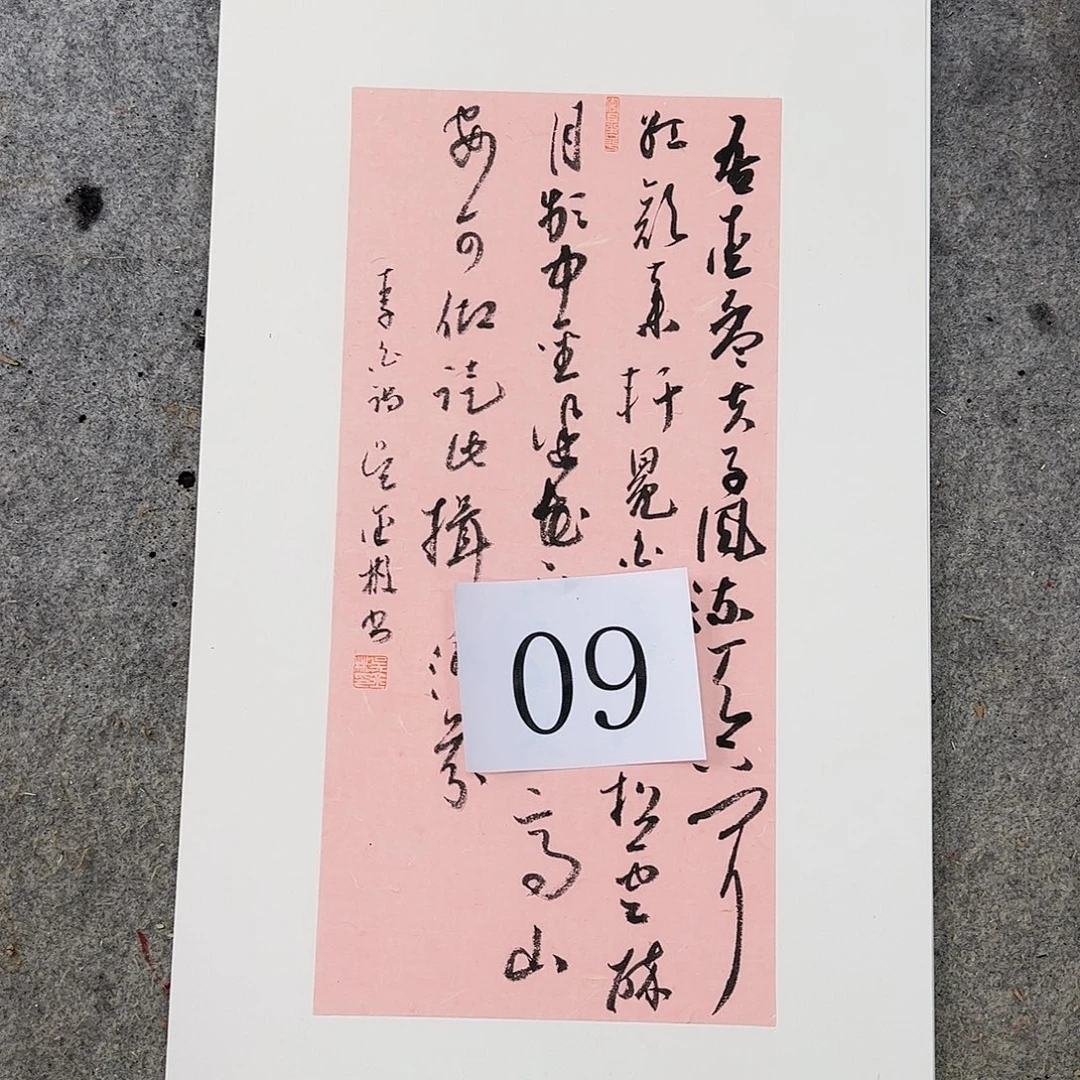 吾爱孟夫子风流天下闻
红颜弃轩冕白松云醉
月频中圣迷花高山
安可仰徒此揖清芬
李白诗 吴书
09